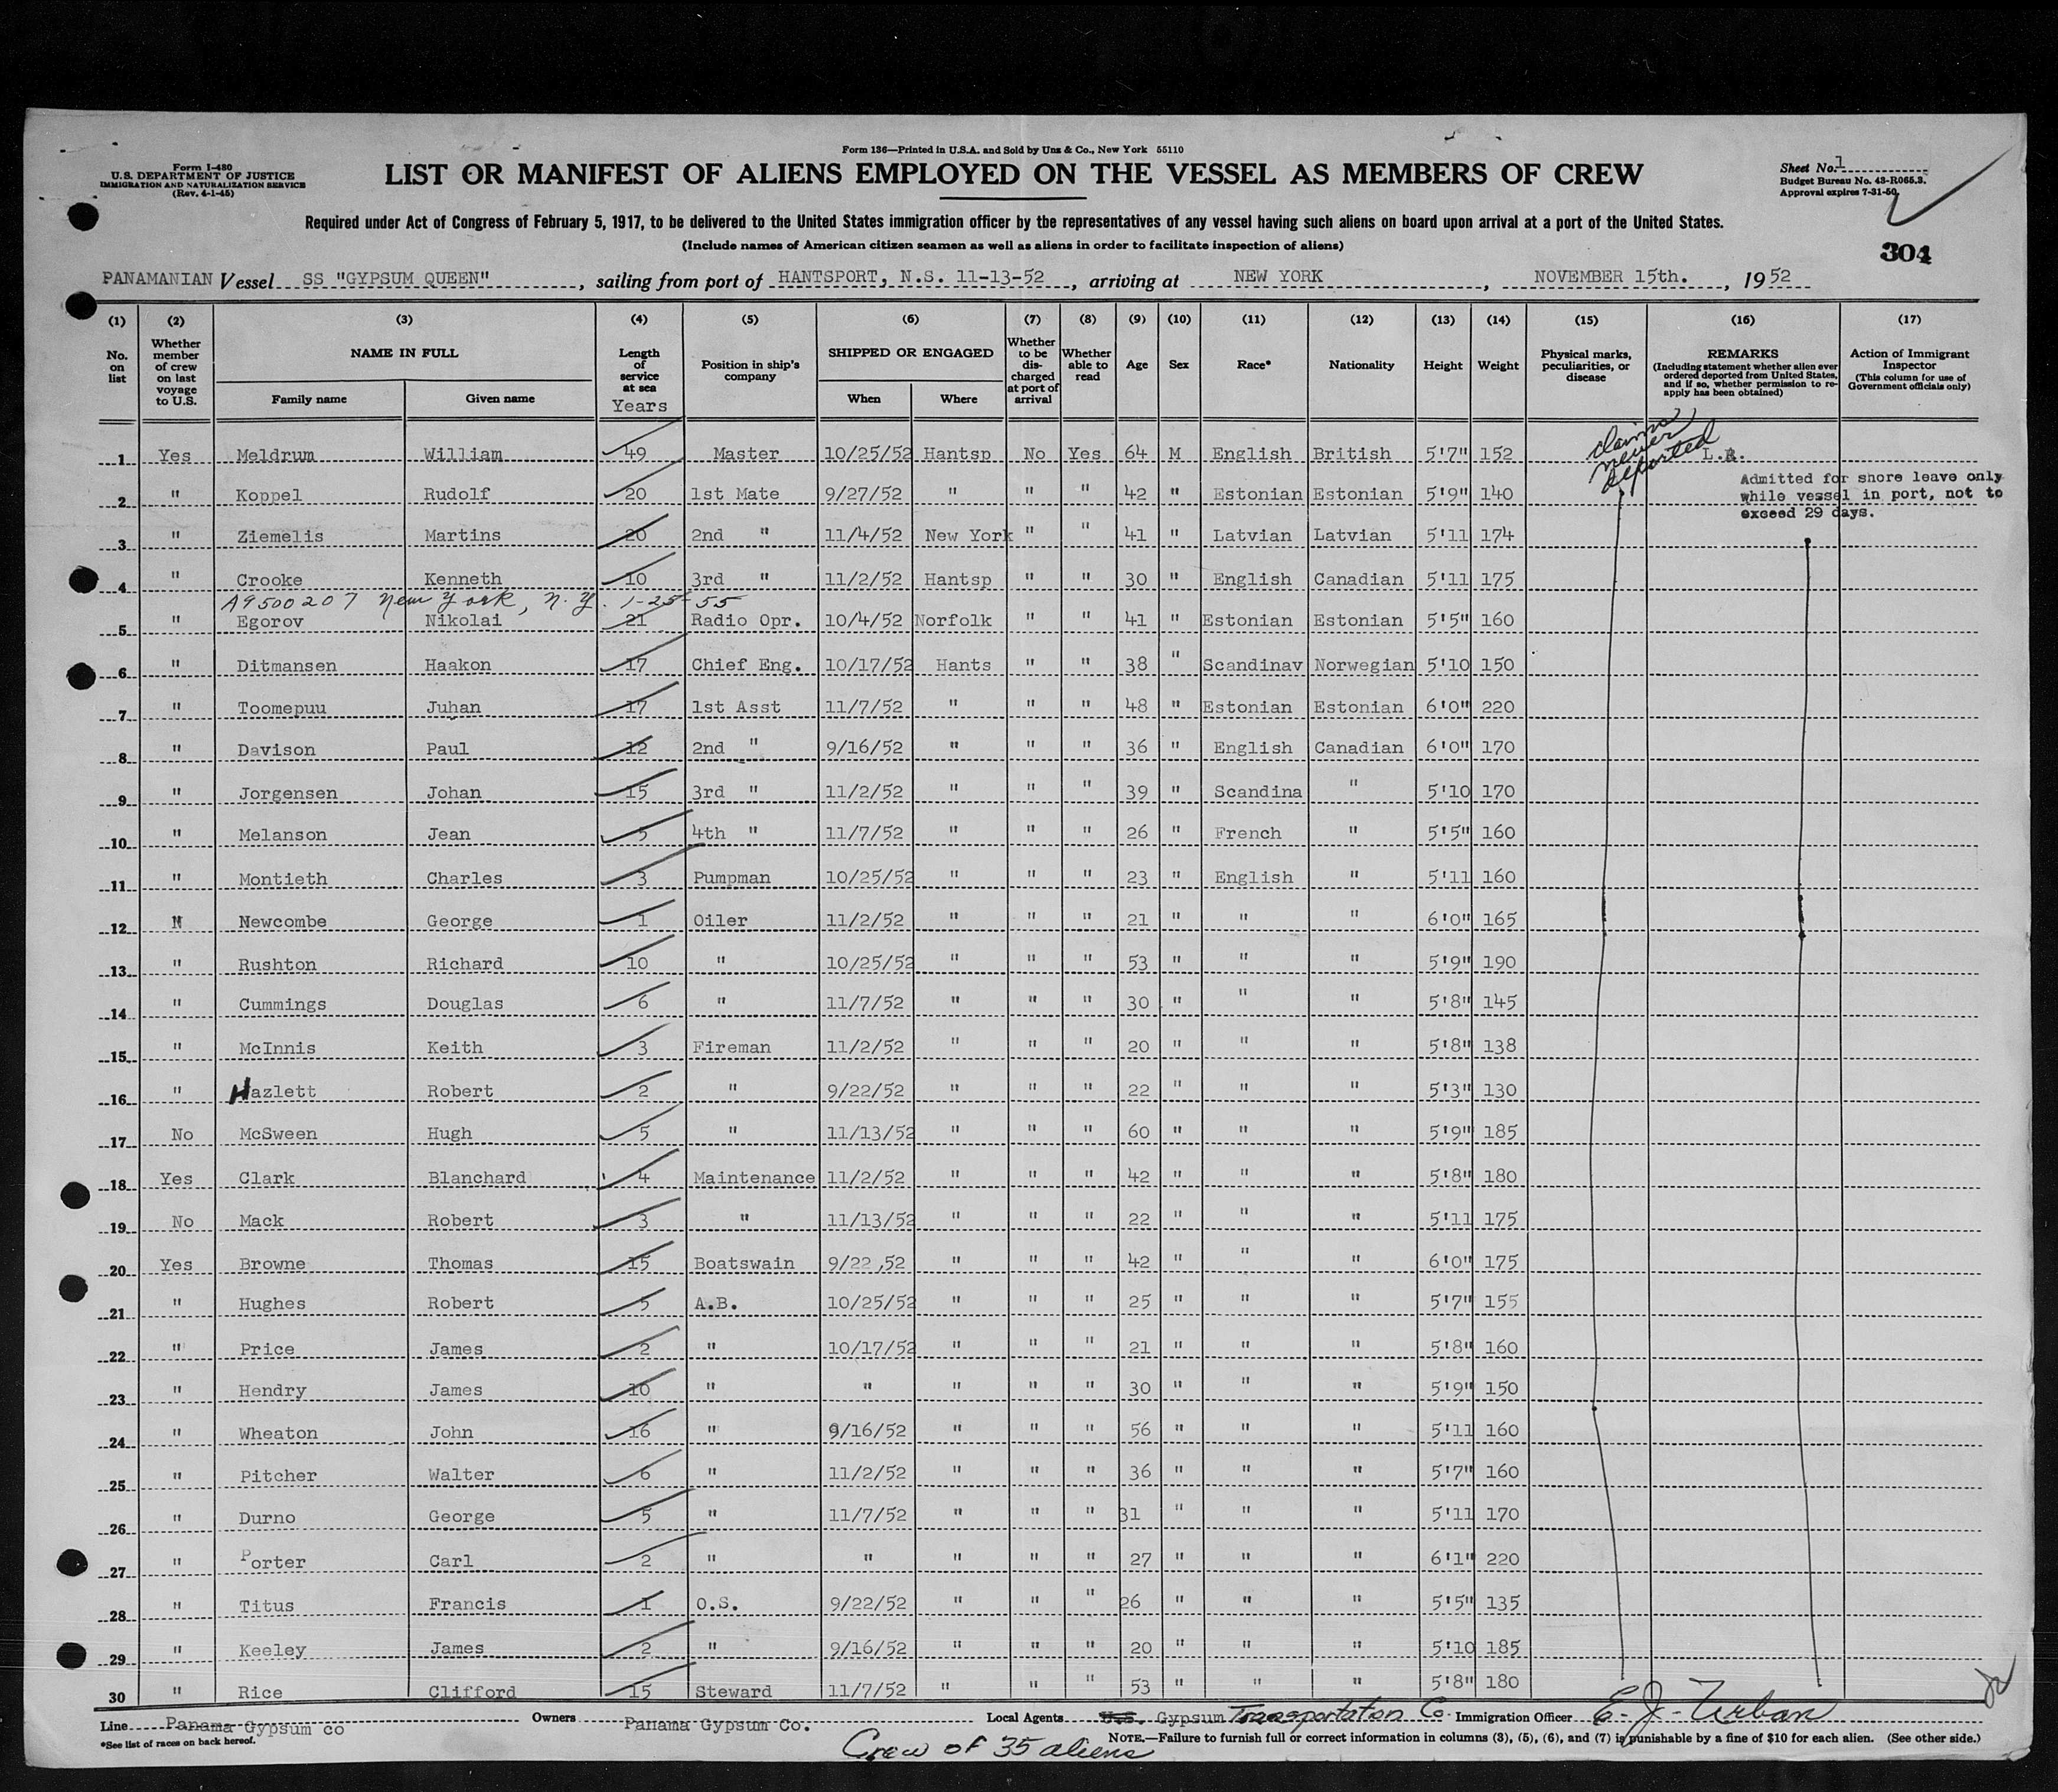 Form I-480
U.S. DEPARTMENT OF JUSTICE
IMMIGRATION AND NATURALIZATION SERVICE
(Rev. 4-1-45)
Form 136—Printed in U.S.A. and Sold by Unz & Co., New York 55110
LIST OR MANIFEST OF ALIENS EMPLOYED ON THE VESSEL AS MEMBERS OF CREW
Sheet No. 1
Budget Bureau No. 43-R065.3.
Approval expires 7-31-50.
Required under Act of Congress of February 5, 1917, to be delivered to the United States immigration officer by the representatives of any vessel having such aliens on board upon arrival at a port of the United States.
(Include names of American citizen seamen as well as aliens in order to facilitate inspection of aliens)
304
PANAMANIAN Vessel SS "GYPSUM QUEEN", sailing from port of HANTSPORT, N.S. 11-13-52, arriving at NEW YORK, NOVEMBER 15th., 1952
(1) (2) (3) (4) (5) (6) (7) (8) (9) (10) (11) (12) (13) (14) (15) (16) (17)
No. on list
Whether member of crew on last voyage to U.S.
NAME IN FULL
Family name Given name
Length of service at sea
Years
Position in ship's company
SHIPPED OR ENGAGED
When Where
Whether to be discharged at port of arrival
Whether able to read
Age
Sex
Race*
Nationality
Height
Weight
Physical marks, peculiarities, or disease
REMARKS
(Including statement whether alien ever ordered deported from United States, and if so, whether permission to re-apply has been obtained)
Action of Immigrant Inspector
(This column for use of Government officials only)
claims never deported
1 Yes Meldrum William 49 Master 10/25/52 Hantsp No Yes 64 M English British 5'7" 152 L.R.
Admitted for shore leave only
while vessel in port, not to
exceed 29 days.
2 " Koppel Rudolf 20 1st Mate 9/27/52 " " " 42 " Estonian Estonian 5'9" 140
3 " Ziemelis Martins 20 2nd " 11/4/52 New York " " 41 " Latvian Latvian 5'11 174
4 " Crooke Kenneth 10 3rd " 11/2/52 Hantsp " " 30 " English Canadian 5'11 175
A9500207 New York, N.Y. 1-25-55
5 " Egorov Nikolai 21 Radio Opr. 10/4/52 Norfolk " " 41 " Estonian Estonian 5'5" 160
6 " Ditmansen Haakon 17 Chief Eng. 10/17/52 Hants " " 38 " Scandinav Norwegian 5'10 150
7 " Toomepuu Juhan 17 1st Asst 11/7/52 " " " 48 " Estonian Estonian 6'0" 220
8 " Davison Paul 12 2nd " 9/16/52 " " " 36 " English Canadian 6'0" 170
9 " Jorgensen Johan 15 3rd " 11/2/52 " " " 39 " Scandina " 5'10 170
10 " Melanson Jean 5 4th " 11/7/52 " " " 26 " French " 5'5" 160
11 " Montieth Charles 3 Pumpman 10/25/52 " " " 23 " English " 5'11 160
12 N Newcombe George 1 Oiler 11/2/52 " " " 21 " " " 6'0" 165
13 " Rushton Richard 10 " 10/25/52 " " " 53 " " " 5'9" 190
14 " Cummings Douglas 6 " 11/7/52 " " " 30 " " " 5'8" 145
15 " McInnis Keith 3 Fireman 11/2/52 " " " 20 " " " 5'8" 138
16 " Hazlett Robert 2 " 9/22/52 " " " 22 " " " 5'3" 130
17 No McSween Hugh 5 " 11/13/52 " " " 60 " " " 5'9" 185
18 Yes Clark Blanchard 4 Maintenance 11/2/52 " " " 42 " " " 5'8" 180
19 No Mack Robert 3 " 11/13/52 " " " 22 " " " 5'11 175
20 Yes Browne Thomas 15 Boatswain 9/22,52 " " " 42 " " " 6'0" 175
21 " Hughes Robert 5 A.B. 10/25/52 " " " 25 " " " 5'7" 155
22 " Price James 2 " 10/17/52 " " " 21 " " " 5'8" 160
23 " Hendry James 10 " " " " " 30 " " " 5'9" 150
24 " Wheaton John 16 " 9/16/52 " " " 56 " " " 5'11 160
25 " Pitcher Walter 6 " 11/2/52 " " " 36 " " " 5'7" 160
26 " Durno George 5 " 11/7/52 " " " 31 " " " 5'11 170
27 " Porter Carl 2 " " " " " 27 " " " 6'1" 220
28 " Titus Francis 1 O.S. 9/22/52 " " " 26 " " " 5'5" 135
29 " Keeley James 2 " 9/16/52 " " " 20 " " " 5'10 185
30 " Rice Clifford 15 Steward 11/7/52 " " " 53 " " " 5'8" 180
Line Panama Gypsum co Owners Panama Gypsum Co. Local Agents U.S. Gypsum Transportation Co. Immigration Officer E. J. Urban
*See list of races on back hereof.
Crew of 35 aliens
NOTE.—Failure to furnish full or correct information in columns (3), (5), (6), and (7) is punishable by a fine of $10 for each alien. (See other side.)